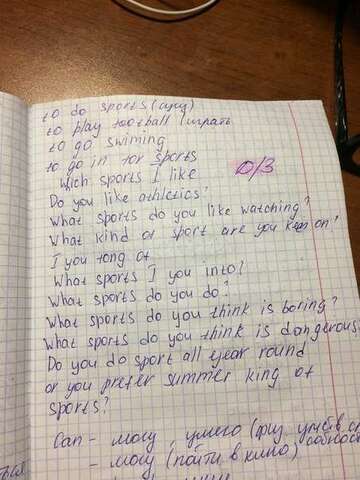 to do sports (
to play football (играть
to go swiming
to go in for sports
Wich sports I like
0/3
Do you like athletics?
What sports do you like watching?
What kind of sport are you keen on?
I you fong of
What sports I you into?
What sports do you do?
What sports do you think is boring?
What sports do you think is dangerous?
Do you do sport all year round
or you prefer summer king of
sports?
Can - могу, умею (
- могу (пойти в кино)